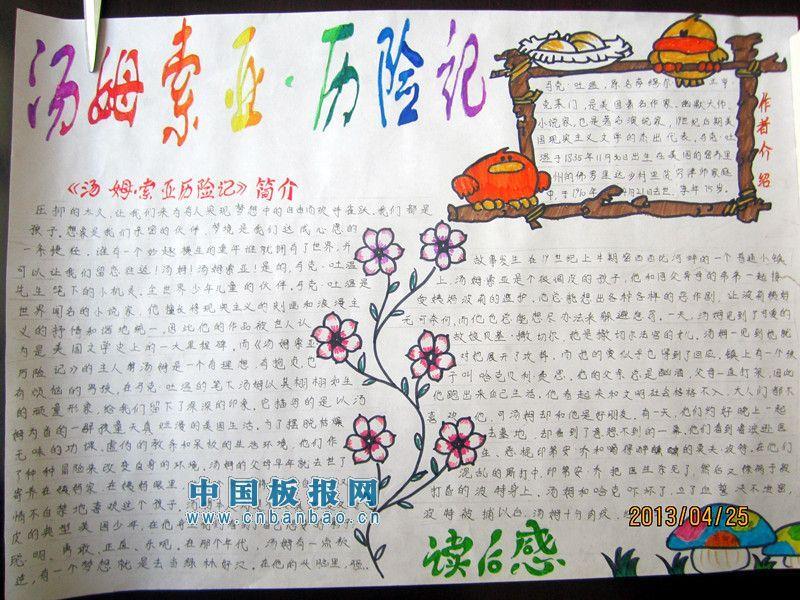 汤姆索亚·历险记
作者介绍
马克·吐温，原名
克莱门，是美国著名作家，幽默大师，
小说家，也是著名演说家，19世纪后期美
国现实主义文学的杰出代表，马克·吐
温于1835年11月30日出生在美国的密苏里
州的佛罗里达乡村
中，于1910年4月21日去世，享年75岁。
《汤姆·索亚历险记》简介
压抑的太久，让我们来
孩子，想象是我们亲密的伙伴，梦境是我们达成心愿的
一条捷径，谁有一个妙趣横生的童年谁就拥有了世界，
可以让我们留恋过這！汤姆！汤姆索亚！是的，马克·吐温
先生笔下的小机灵，全世界少年儿童的伙伴，马克·吐温是
世界闻名的小说家，他擅长将现实主义的刻画和浪漫主
义的抒情和谐地统一，因此他的作品被世人认
为是美国文学史上的一大里程碑，而《汤姆索亚
历险记》的主人翁汤姆是一个有理想，有抱负，也
有烦恼的男孩，在马克·吐温的笔下汤姆以其栩栩如生
的顽童形象，给我们留下了深深的印象，它描写的是以汤
姆为首的一群孩童天真烂漫的美国生活，为了摆脱枯燥
无味的功课，虚伪的教条和呆板的生活环境，他们作
了种种冒险来改变自身的环境，汤姆的父母早年就去世了
寄养在姨妈家，在姨妈眼里
情不自禁地喜欢这个孩子，
皮的典型美国少年，在他
聪明、勇敢、正直、乐观，在那个年代，汤姆有一点叛
逆，有一个梦想就是去当绿林好汉，在他的头脑里，
故事发生在19世纪上半期密西西比河畔的一个普通小镇
上，汤姆索亚是个很调皮的孩子，他和同父异母的弟弟一起接
受姨妈波莉的监护，他总能想出各种各样的恶作剧，让波莉姨妈
无可奈何，而他也总能想尽办法来躲避惩罚，一天，汤姆见到了可爱的
姑娘贝基·撒切尔，她是撒切尔法官的女儿，汤姆一见到她就
对他展开了攻势，而他的爱似乎也得到了回应，镇上有一个孩
子叫哈克贝利·费恩，他的父亲总是酗酒，父母一直打架，因此
他跑出来自己生活，他看起来和文明社会格格不入，大人们都不
喜欢他，可汤姆却和他是好朋友，有一天，他们约好晚上一起
去墓地，却看到了意想不到的一幕，他们看到鲁滨逊医
生，恶棍印第安·乔和喝得醉醺醺的莫夫·波特，在他们
混乱的厮打中，印第安·乔把医生杀死了，然后又嫁祸于被
打昏的波特身上，汤姆和哈克吓坏了，立了血誓决不泄密，
波特被捕以后，汤姆十分内疚，
读后感
中国板报网
www.cnbanbao.cn
2013/04/25